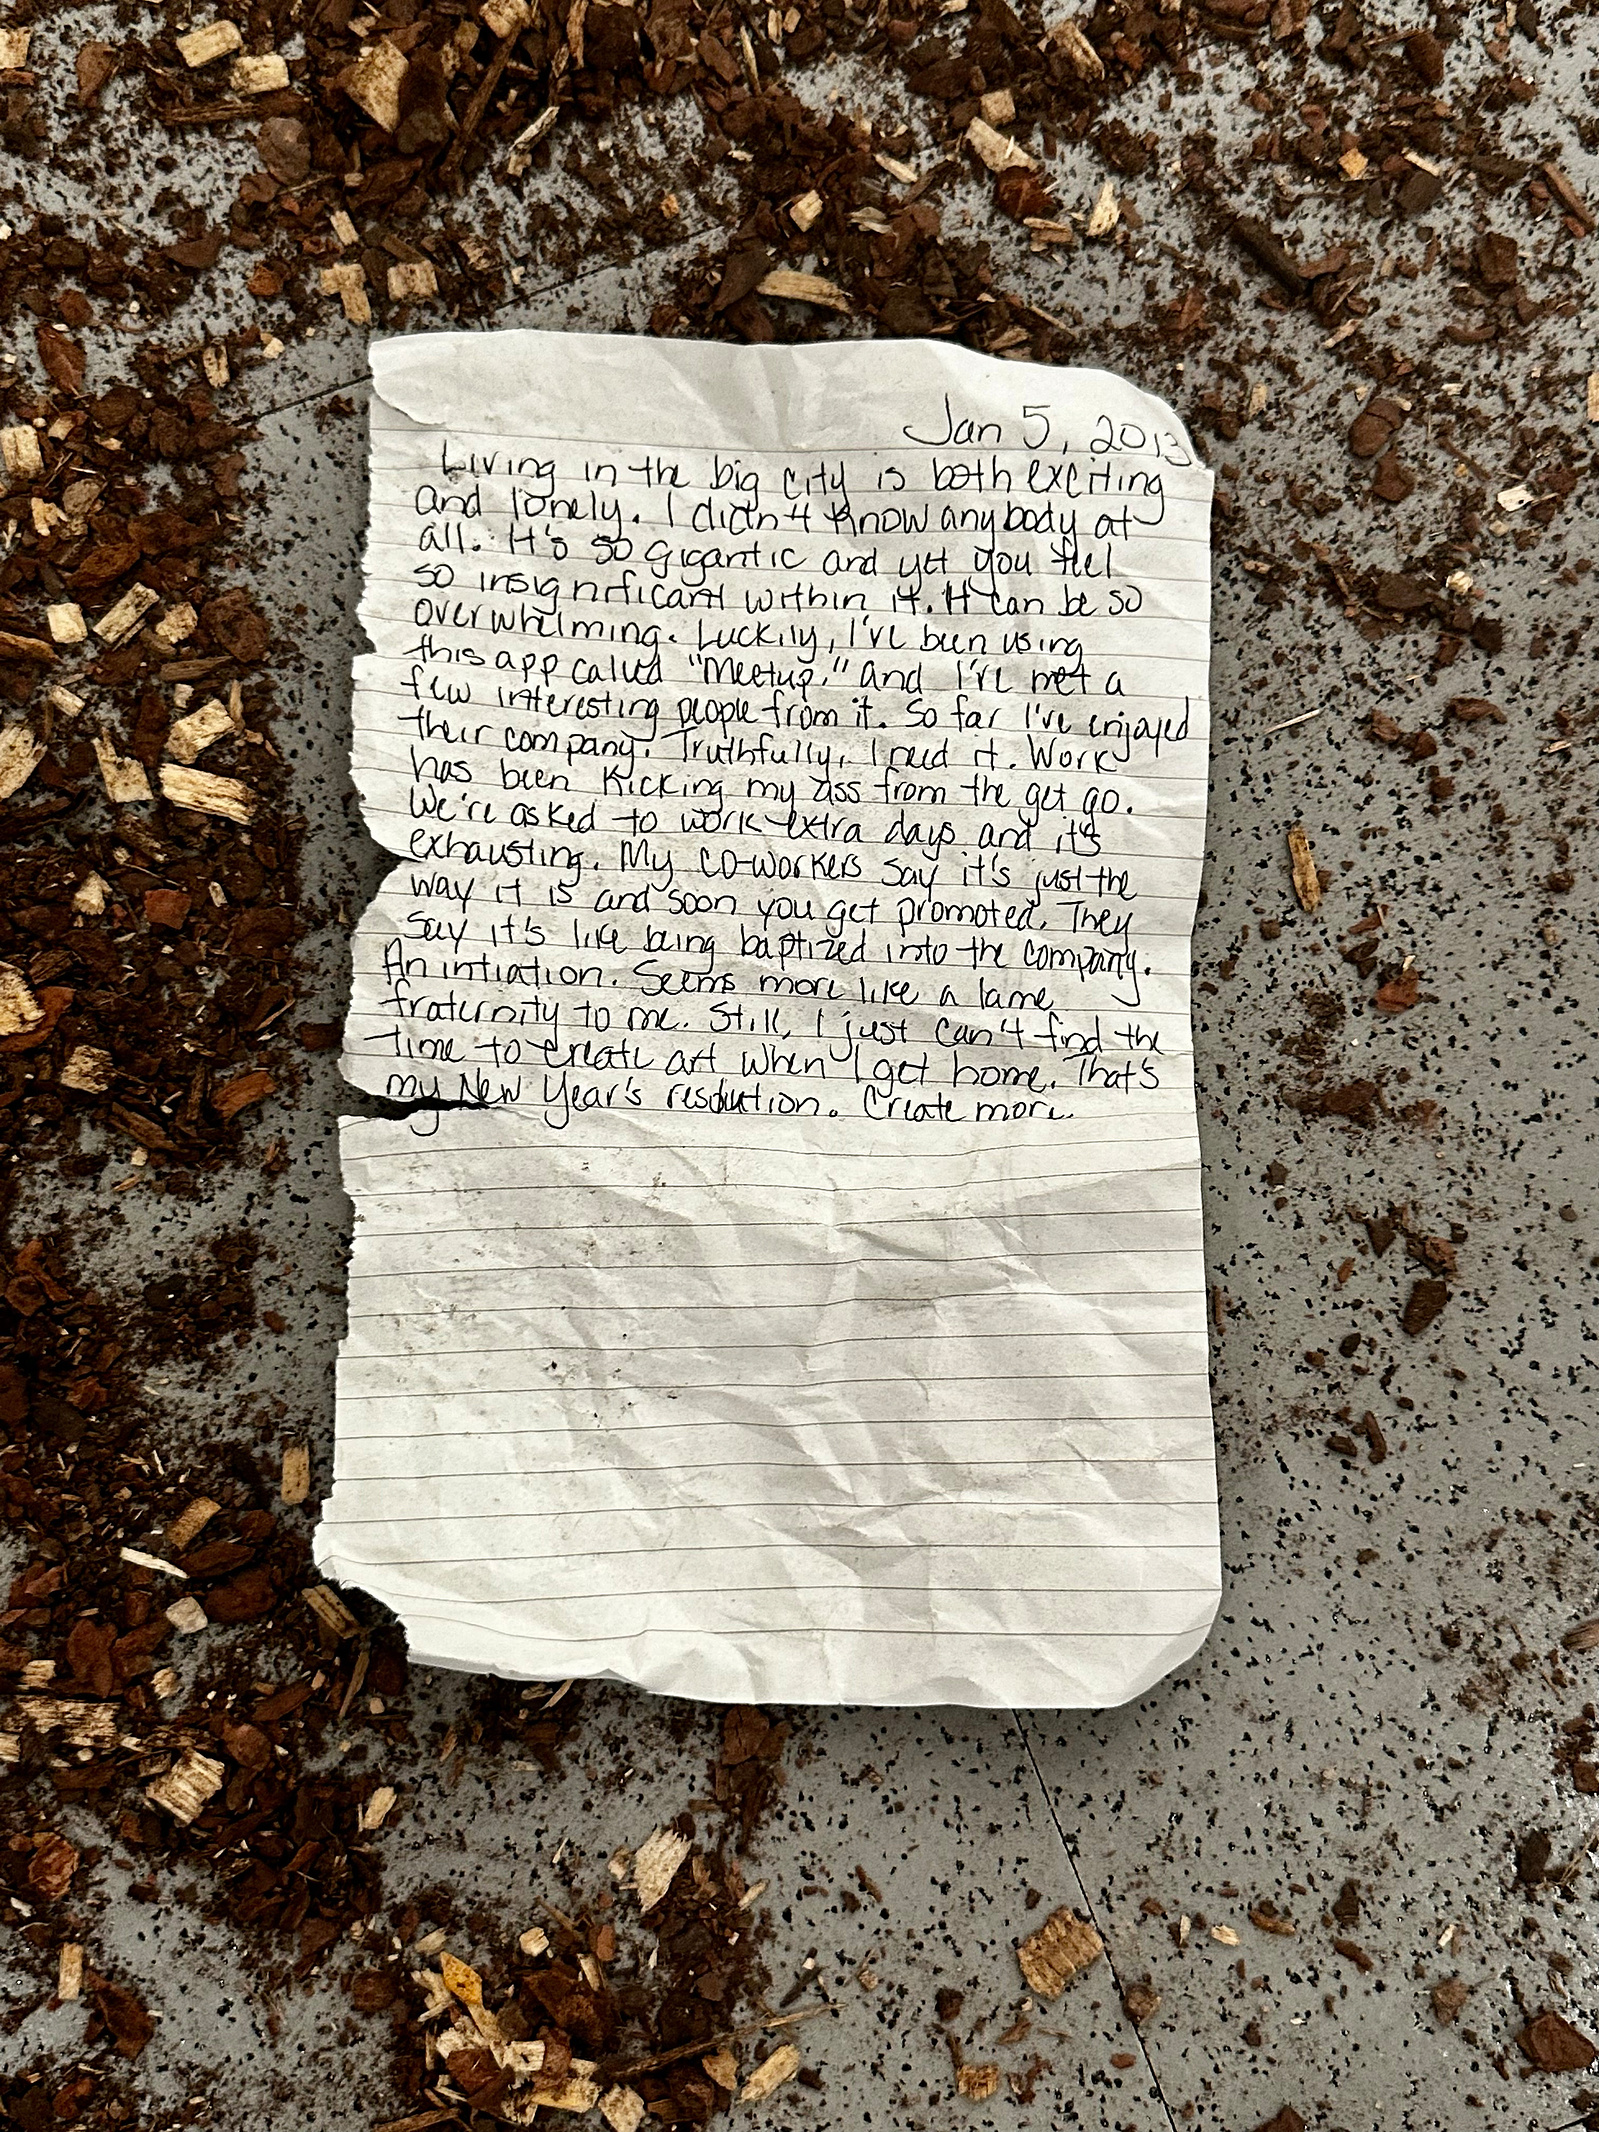 Jan 5, 2013
Living in the big city is both exciting
and lonely. I didn't know anybody at
all. It's so gigantic and yet you feel
so insignificant within it. It can be so
overwhelming. Luckily, I've been using
this app called "Meetup." and I've met a
few interesting people from it. So far I've enjoyed
their company. Truthfully, I need it. Work
has been kicking my ass from the get go.
We're asked to work extra days and it's
exhausting. My co-workers say it's just the
way it is and soon you get promoted. They
say it's like being baptized into the company.
An intiation. Seems more like a lame
fraternity to me. Still, I just can't find the
time to create art when I get home. That's
my New Year's resolution. Create more.